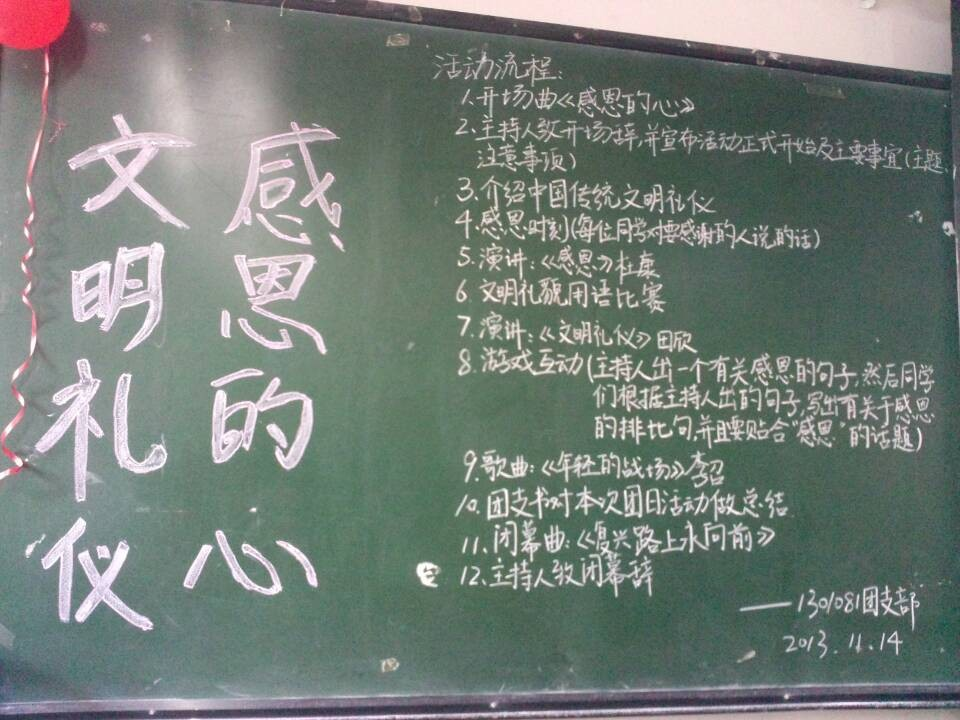 感恩的心
文明礼仪
活动流程:
1.开场曲《感恩的心》
2.主持人致开场辞,并宣布活动正式开始及主要事宜(主题、
注意事项)
3.介绍中国传统文明礼仪
4.感恩时刻(每位同学对要感谢的人说的话)
5.演讲:《感恩》杜康
6.文明礼貌用语比赛
7.演讲:《文明礼仪》田欣
8.游戏互动(主持人出一个有关感恩的句子,然后同学
们根据主持人出的句子,写出有关于感恩
的排比句,并且要贴合“感恩”的话题)
9.歌曲:《年轻的战场》李召
10.团支书对本次团日活动做总结
11.闭幕曲:《复兴路上永向前》
12.主持人致闭幕辞
——1301081团支部
2013.11.14